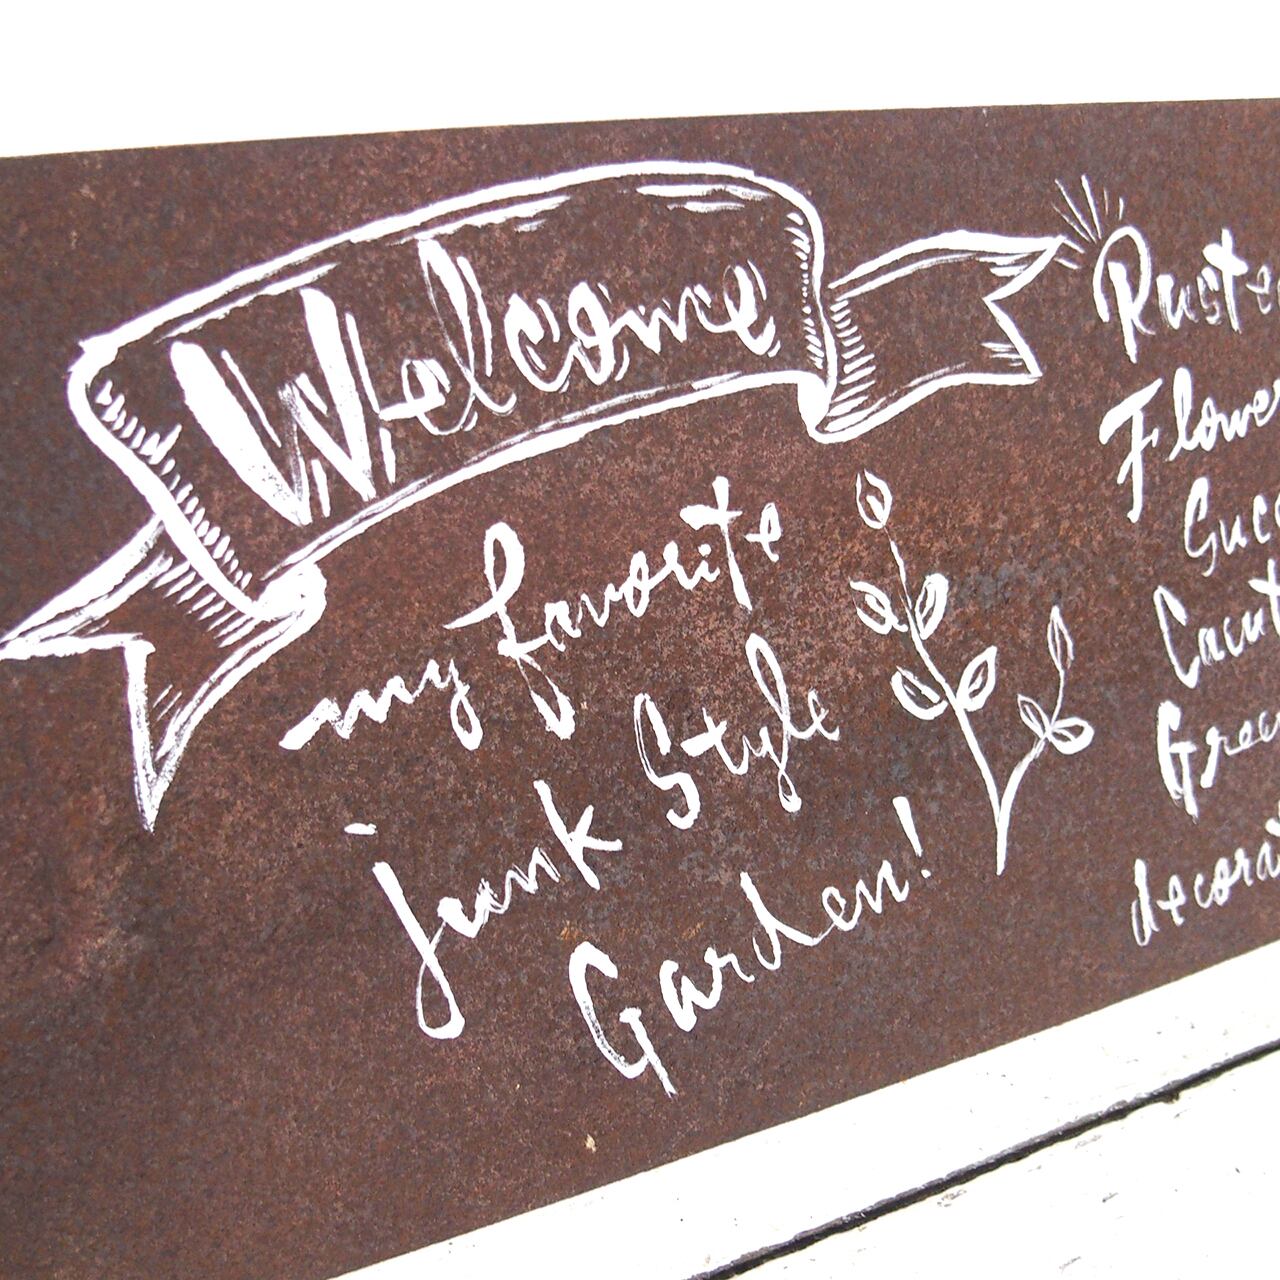 Welcome
my favorite
junk Style
Garden!
Ruste
Flower
Succ
Cacut
Gree
decorat